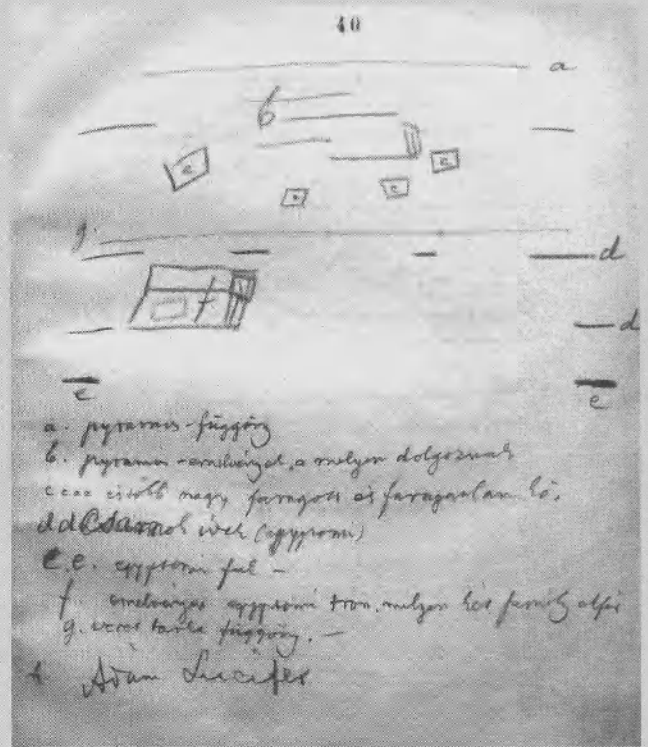 40
a
b
c c
c c
g. d
f
d
e e
a. pyramis-függöny
b. pyramis-emelvényzet, a melyen dolgoznak
c c c c és több nagy faragott és faragatlan kő.
d d Csarnok ívek (egyptomi)
e. e. egyptomi fal –
f emelvényes egyptomi trón, melyen két személy elfér
g. tarka függöny. –
Ádám Lucifer